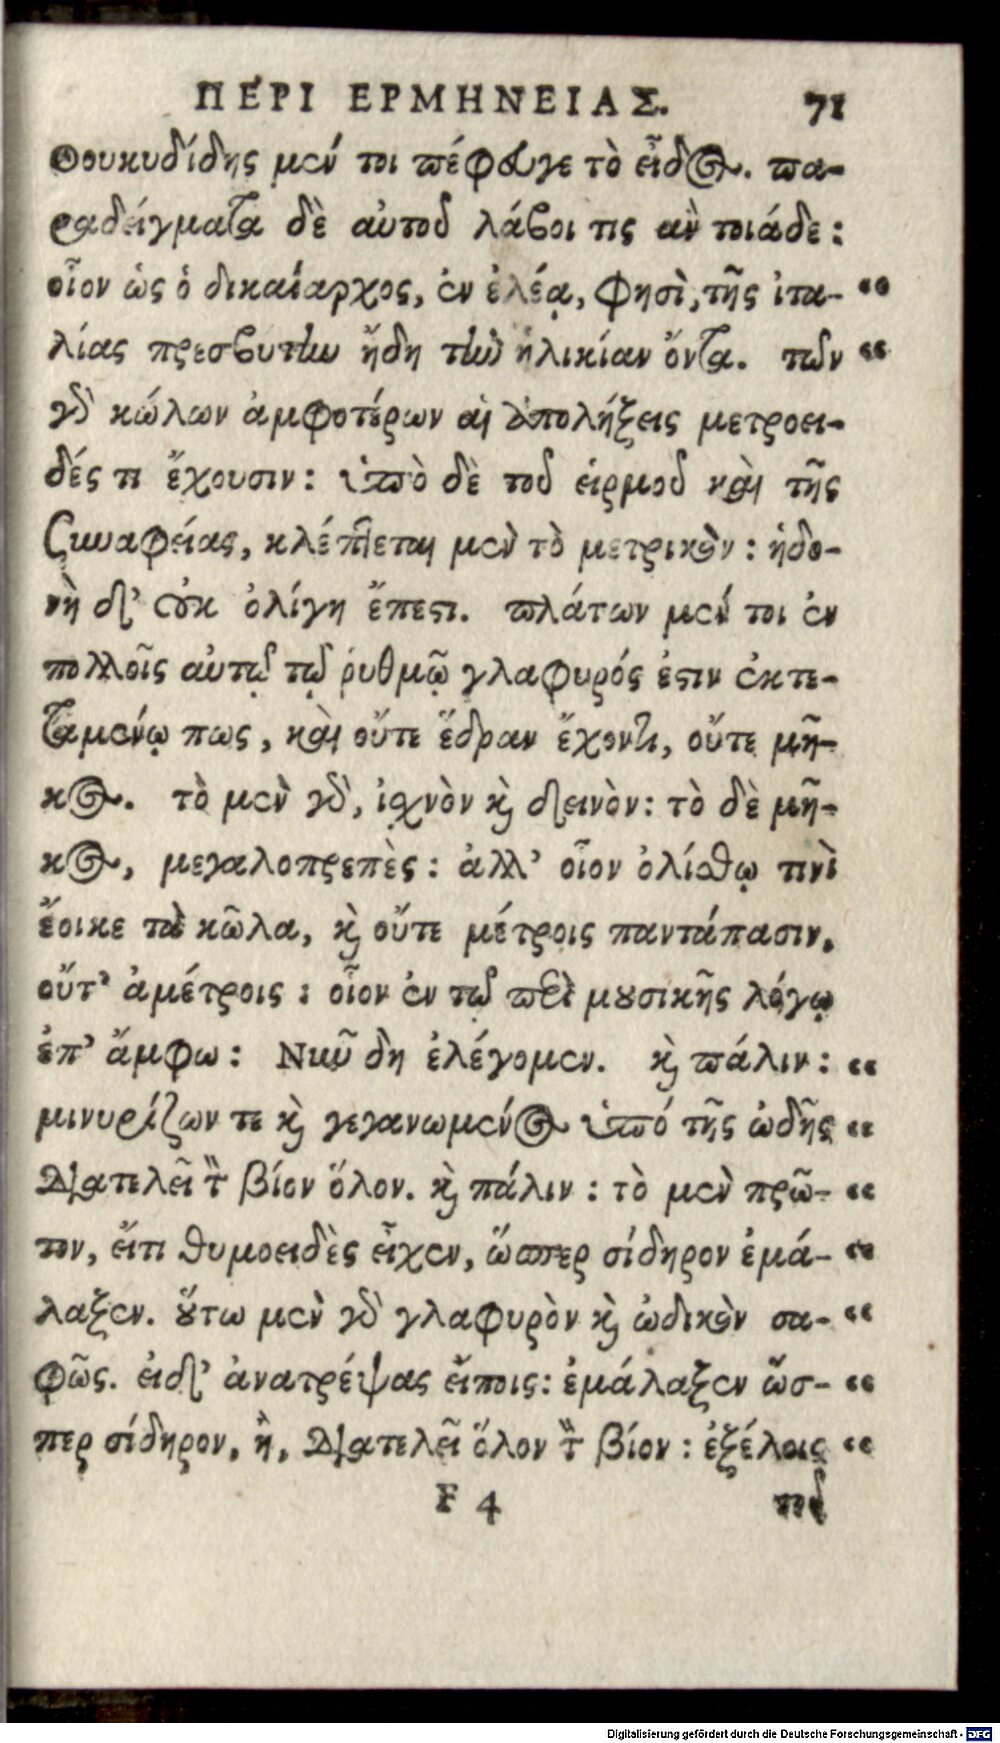 ΠΕΡΙ ΕΡΜΗΝΕΙΑΣ. 71
Θουκυδίδης μέν τοι πέφευγε τὸ εἶδος. πα-
ραδείγματα δὲ αὐτοῦ λάβοι τις ἂν τοιάδε:
οἷον ὡς ὁ δικαίαρχος, ἐν ἐλέᾳ, φησὶ, τῆς ἰτα- “
λίας πρεσβυτὴν ἤδη τὴν ἡλικίαν ὄντα. τῶν “
γὸ κώλων ἀμφοτέρων αἱ ἀπολήξεις μετροει-
δές τι ἔχουσιν: ὑπὸ δὲ τοῦ εἱρμοῦ καὶ τῆς
συναφείας, κλέπτεται μὲν τὸ μετρικὸν: ἡδο-
νὴ δ’ οὐκ ὀλίγη ἔπεστι. πλάτων μέν τοι ἐν
πολλοῖς αὐτῷ τῷ ῥυθμῷ γλαφυρός ἐστιν ἐκτε-
ταμένῳ πως, καὶ οὔτε ἕδραν ἔχοντι, οὔτε μῆ-
κος. τὸ μὲν γὸ, ἰσχνὸν κὶ δεινὸν: τὸ δὲ μῆ-
κος, μεγαλοπρεπὲς: ἀλλ’ οἷον ὀλίσθῳ τινὶ
ἔοικε τὰ κῶλα, κὶ οὔτε μέτροις παντάπασιν,
οὔτ’ ἀμέτροις: οἷον ἐν τῷ περὶ μουσικῆς λόγῳ
ἐπ’ ἄμφω: Νῦν δη ἐλέγομεν. κὶ πάλιν: “
μινυρίζων τε κὶ γεγανωμένος ὑπό τῆς ὠδῆς “
διατελεῖ τ̃ βίον ὅλον. κὶ πάλιν: τὸ μὲν πρῶ- “
τον, εἴτι θυμοειδὲς εἶχεν, ὥσπερ σίδηρον ἐμά- “
λαξεν. οὕτω μὲν γὸ γλαφυρὸν κὶ ὠδικὸν σα- “
φῶς. εἰδ’ ἀνατρέψας εἴποις: ἐμάλαξεν ὥσ- “
περ σίδηρον, ἢ, διατελεῖ ὅλον τ̃ βίον: ἐξέλοις “
F 4 τοῦ
Digitalisierung gefördert durch die Deutsche Forschungsgemeinschaft - DFG